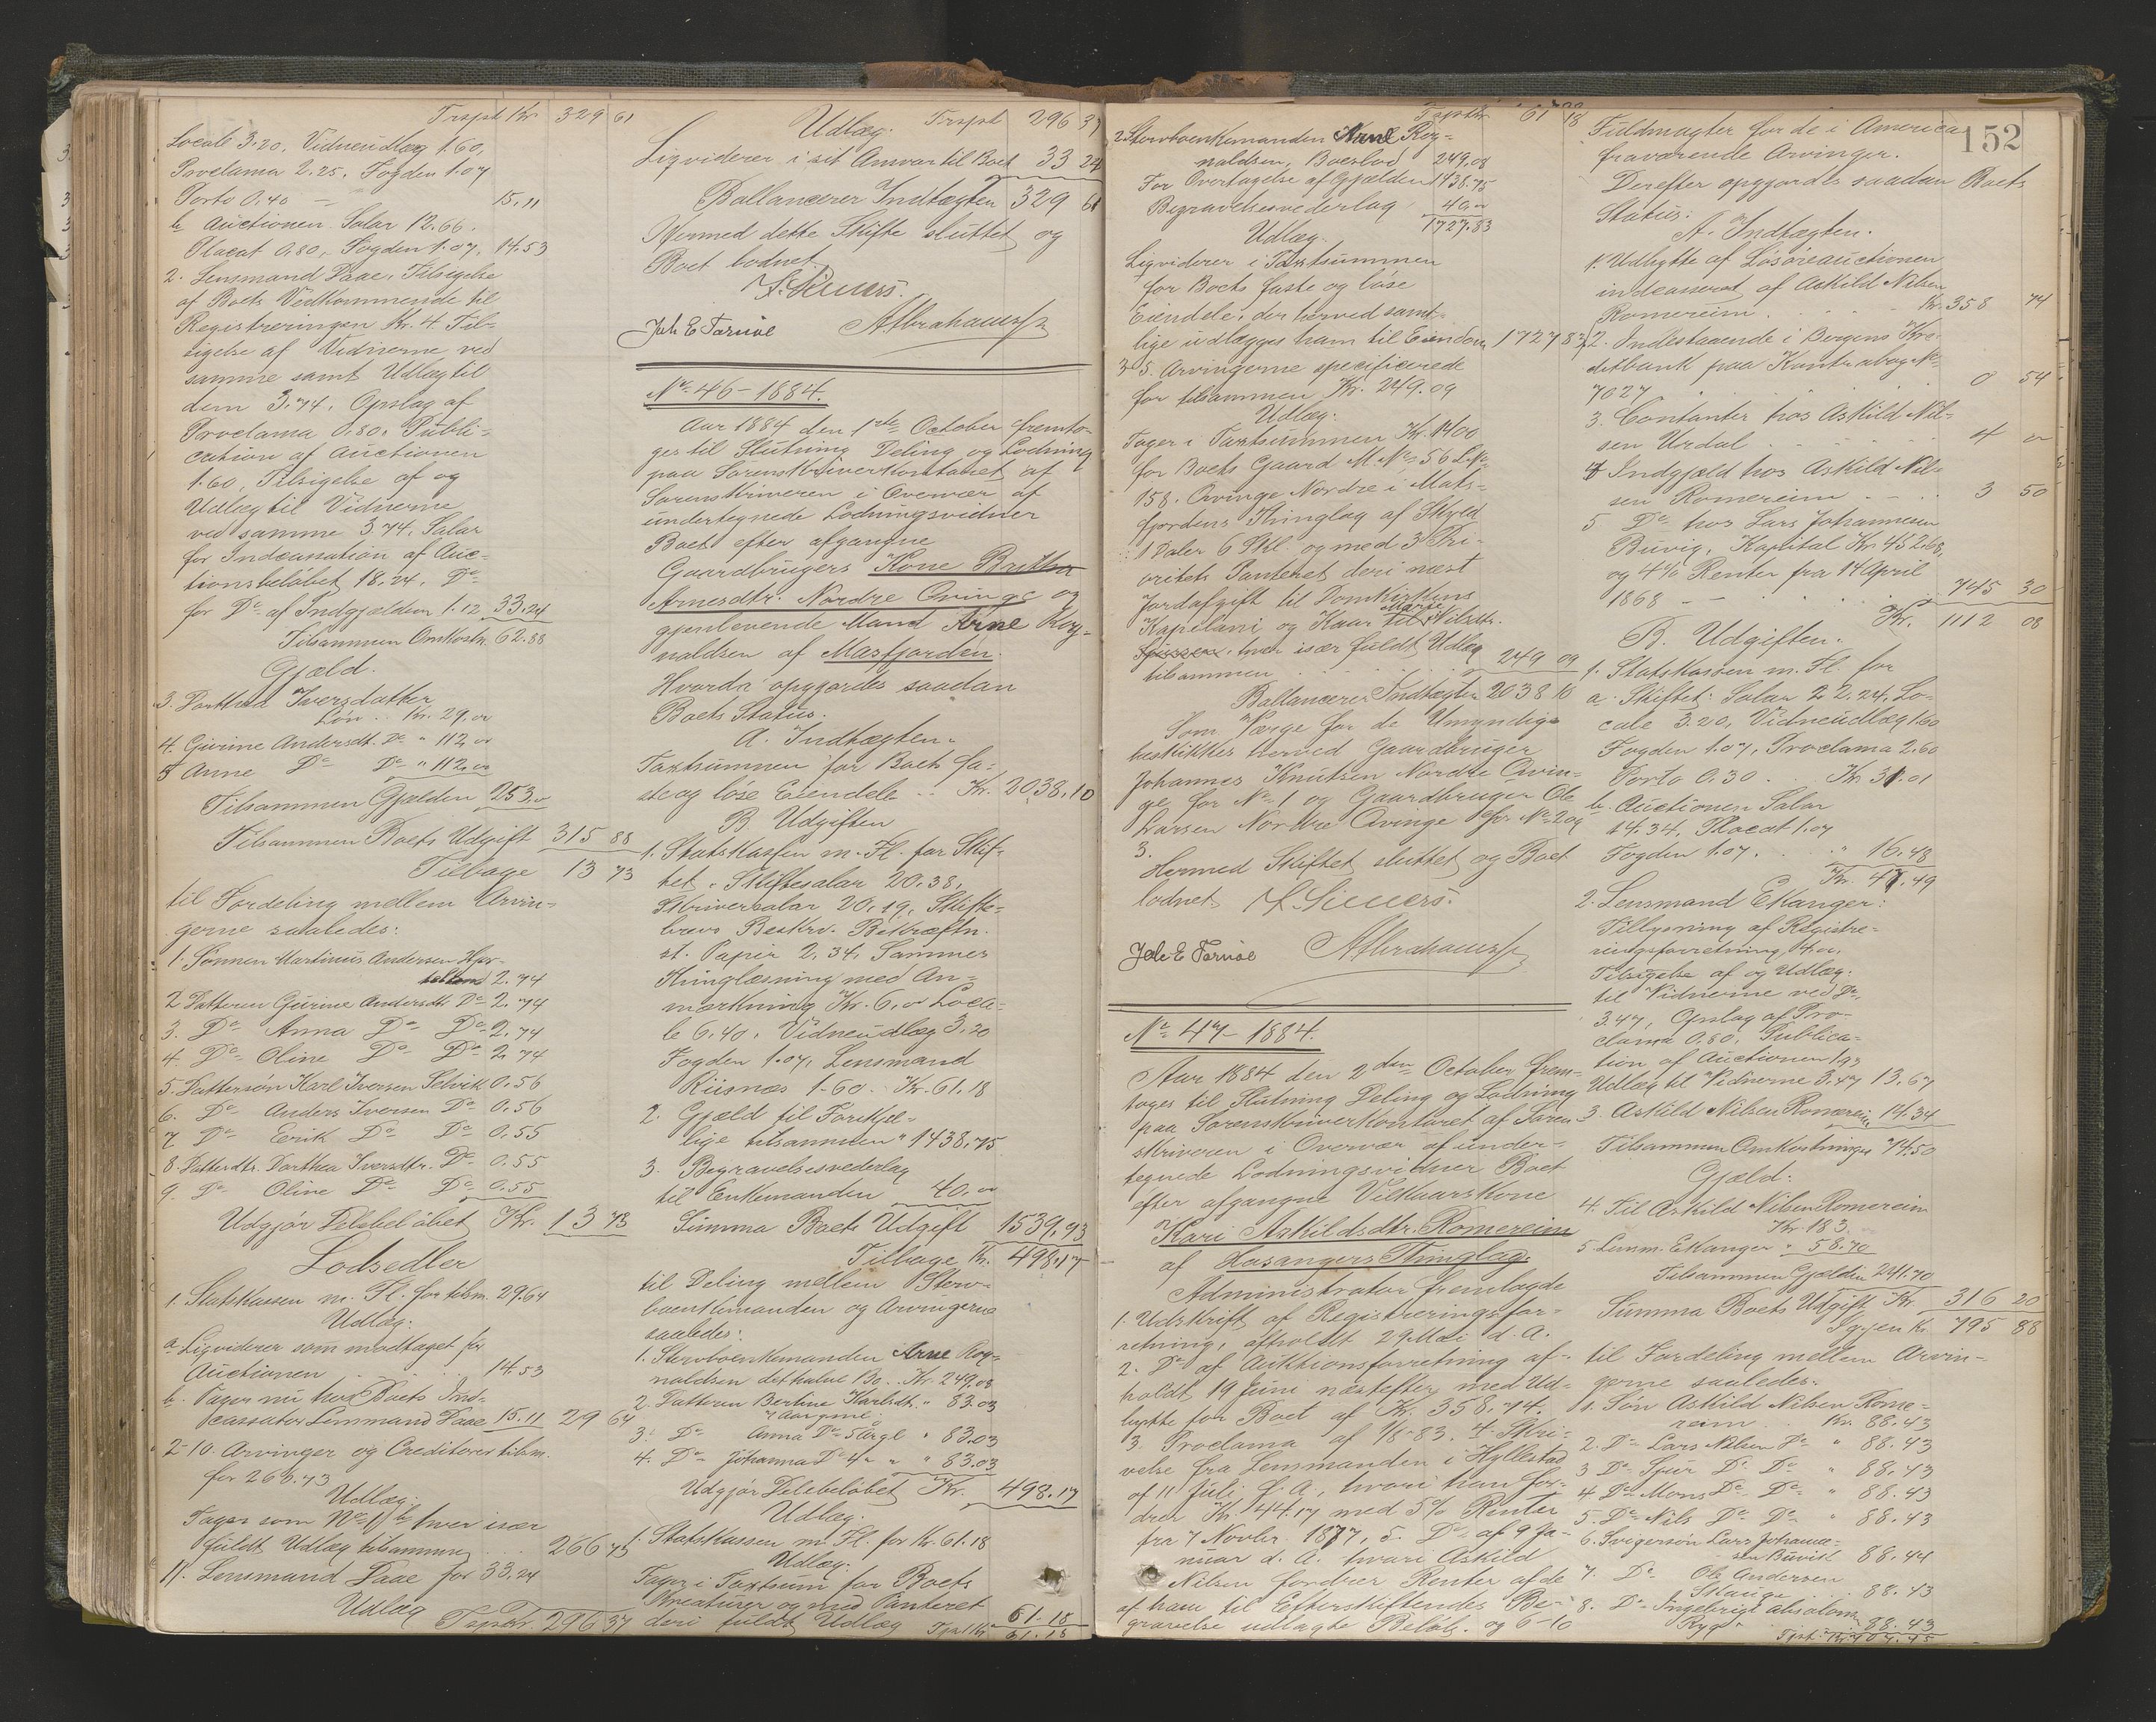 Trspt Kr. 329 61
Locale 3.20, Vidneudlæg 1.60,
Proclama 2.25, Fogden 1.07
Porto 0.40 — 15.11
b Auctionen Salar 12.66.
Placat 0.80, Fogden 1.07, 14.53
2. Lensmand Daae, Tilsigelse
af Boets Vedkommende til
Registreringen Kr. 4. Til-
sigelse af Vidnerne ved
samme samt Udlæg til
dem 3.74. Opslag af
Proclama 0.80. Publi-
cation af Auctionen
1.60, Tilsigelse af og
Udlæg til Vidnerne
ved samme 3.74, Salar
for Indcassation af Auc-
tionsbeløbet 18.24. Do
for Do af Indgjælden 1.12 33.24
Tilsammen Omkostn. 62.88
Gjæld.
3. Dorthea Iversdatter
Løn .. Kr. 29.00
4. Gurine Andersdt. Do " 112.00
5 Anne Do Do " 112.00
Tilsammen Gjælden 253.00
Tilsammen Boets Udgift 315 88
Tilbage 13 73
til Fordeling mellem Arvin-
gerne saaledes:
1. Sønnen Martinus Andersen
2.74
2 Datteren Gurine Andersdt. Do 2.74
3. Do Anna Do Do 2.74
4. Do Oline Do Do 2.74
5. Dattersøn Karl Iversen Selvik 0.56
6. Do Anders Iversen Do 0.56
7 Do Eerik Do Do 0.55
8. Datterdtr. Dorthea Iversdtr. Do 0.55
9. Do Oline Do Do 0.55
Udgjør Delebeløbet Kr. 13 73
Lodsedler
1. Statskassen m. Fl. for tilsm. 29.64
Udlæg:
a Liqviderer som modtaget for
Auctionen . . . 14.53
b. Tager nu hos Boets Ind-
cassator Lensmand Daae 15.11 29 64
2-10. Arvinger og Creditorer tilsm.
for 266.73
Udlæg:
Tager som No 1 b hver især
fuldt Udlæg tilsammen 266 73
11. Lensmand Daae for 33.24
Udlæg
Trsptkr. 296 37
Udlæg: Trspt 296 37
Liqviderer i sit Ansvar til Boet 33 24
Ballancerer Indtægten 329 61
Hermed dette Skifte sluttet og
Boet lodnet.
Joh E Tornøe
No 46 - 1884.
Aar 1884 den 1ste October fremto-
ges til Slutning Deling og Lodning
paa Sorenskriverkontoret af
Sorenskriveren i Overvær af
undertegnede Lodningsvidner
Boet efter afgangne
Gaardbrugers Kone Britha
Arnesdtr. Nordre Qvinge og
gjenlevende Mand Arne Rog-
naldsen af Masfjorden.
Hvorda opgjordes saadan
Boets Status:
A. Indtægten.
Taxtsummen for Boets fa-
ste og løse Eiendele .. Kr. 2038.10
B Udgiften
1. Statskassen m. Fl. for Skif-
tet. Skiftesalar 20.38,
Skriversalar 20.19, Skifte-
brevs Beskrv. Bekræftn.
st. Papir 2.34, Sammes
Thinglæsning med An-
mærkning Kr. 6.00 Loca-
le 6.40. Vidneudlæg 3.20
Fogden 1.07, Lensmand
Riisnæs 1.60. Kr. 61.18
2. Gjæld til Forskjel-
lige tilsammen " 1438.75
3. Begravelsesvederlag
til Enkemanden 40.00
Summa Boets Udgift 1539.93
Tilbage Kr. 498.17
til Deling mellem Sterv-
boenkemanden og Arvingerne
saaledes:
1. Stervboenkemanden Arne Rog-
naldsen det halve Bo.. Kr. 249.08
2. Datteren Bertine Karlsdt. " 83.03
7 Aar gml.
3. Do Anna Do 5 Aar gl. " 83.03
4. Do Johanna Do 4 " " " 83.03
Udgjør Delebeløbet Kr. 498.17
Udlæg:
1. Statskassen m. Fl. for Kr. 61.18
Udlæg:
Tager i Taxtsum for Boets
Kreaturer og med Panteret
deri fuldt Udlæg 61.18
Tspt Kr 61.18
Tsptkr. 61 18
2. Stervboenkemanden Arne Rog-
naldsen, Boeslod 249.08
For Overtagelse af Gjælden 1438.75
Begravelsesvederlag 40.00
1727.83
Udlæg.
Liqviderer i Taxtsummen
for Boets faste og løse
Eiendele, der herved samt-
lige udlægges ham til Eiendom 1727 83
3-5. Arvingerne specificerede
for tilsammen Kr. 249.09
Udlæg:
Tager i Taxtsummen Kr. 1400
for Boets Gaard M. No 56 L. No
158. Qvinge Nordre i Mats-
fjordens Thinglag af Skyld
1 Daler 6 Skl. og med 3 Pri-
oritets Panteret deri næst
Jordafgift til Domkirkens
Kapelani og Kaar til Marie Nilsdtr.
hver især fuldt Udlæg
tilsammen . . . 249 09
Ballancerer Indtægten 2038 10
Som Værge for de Umyndige
beskikkes herved Gaardbruger
Johannes Knutsen Nordre Qvin-
ge for No 1 og Gaardbruger Ole
Larsen Nordre Qvinge for No 2 og
3.
Hermed Skiftet sluttet og Boet
lodnet.
Joh E Tornøe
No 47 - 1884.
Aar 1884 den 2den October frem-
toges til Slutning Deling og Lodning
paa Sorenskriverkontoret af Soren
skriveren i Overvær af under-
tegnede Lodningsvidner Boet
efter afgangne Vilkaarskone
Kari Askildsdtr. Romereim
af Hosangers Thinglag.
Administrator fremlagde
1. Udskrift af Registreringsfor-
retning, afholdt 29 Mai d. A.
2. Do af Auktionsforretning af-
holdt 19 Juni næstefter med Ud-
bytte for Boet af Kr. 358.74.
3. Proclama af 1/8-83. 4. Skri-
velse fra Lensmanden i Hyllestad
af 11 Juli f. A., hvori han for-
drer Kr. 44.17 med 5% Renter
fra 7 Novbr. 1877, 5. Do af 9 Ja-
nuar d. A. hvori Askild
Nilsen fordrer Renter af de
af ham til Efterskiftendes Be-
gravelse udlagte Beløb. og 6-10
152
Fuldmagter for de i America
fraværende Arvinger.
Derefter opgjordes saadan Boets
Status:
A. Indtægten.
1. Udbytte af Løsøreauctionen
indcasseret af Askild Nilsen
Romereim . . . Kr. 358 74
2. Indestaaende i Bergens Kre-
ditbank paa Kontrabog No
7027 . . . 0 54
3. Contanter hos Askild Nil-
sen Urdal . . . 4 00
4 Indgjæld hos Askild Nil-
sen Romereim . . . 3 50
5 Do hos Lars Johannesen
Buvig, Kapital Kr. 452.68,
og 4% Renter fra 14 April
1868 — 745 30
Kr. 1112 08
B. Udgiften.
1. Statskassen m. Fl. for
a. Skiftet: Salar 22.24, Lo-
cale 3.20, Vidneudlæg 1.60
Fogden 1.07, Proclama 2.60
Porto 0.30 . . Kr. 31.01
b. Auctionen Salar
14.34, Placat 1.07
Fogden 1.07. . . " 16.48
Kr. 47.49
2. Lensmand Ekanger:
Tillysning af Registre-
ringsforretning 4.00,
Tilsigelse af og Udlæg:
til Vidnerne ved Do,
3.47, Opslag af Pro-
clama 0.80, Publica-
tion af Auctionen 1.93
Udlæg til Vidnerne 3.47 13.67
3. Askild Nilsen Romereim 14.34
Tilsammen Omkostninger 74.50
Gjæld:
4. Til Askild Nilsen Romereim
Kr. 183
5 Lensm. Ekanger " 58.70
Tilsammen Gjælden 241.70
Summa Boets Udgift Kr. 316 20
Igjen Kr. 795 88
til Fordeling mellem Arvin-
gerne saaledes:
1. Søn Askild Nilsen Rome-
reim . . Kr. 88.43
2. Do Lars Nilsen Do " 88.43
3 Do Sjur Do Do " 88.43
4 Do Mons Do Do " 88.43
5. Do Nils Do Do " 88.43
6. Svigersøn Lars Johanne-
sen Buvik 88.44
7. Do Ole Andersen
Skauge . . 88.43
8. Do Ingebrigt Absalons.
Ryg . . 88.43
Tspt. Kr. 707.45